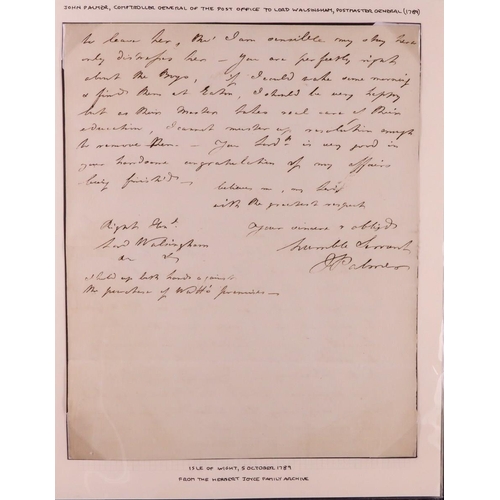 JOHN PALMER, COMPTROLLER GENERAL OF THE POST OFFICE TO LORD WALSINGHAM, POSTMASTER GENERAL (1789)
to leave her, tho' I am sensible my stay here
only distresses her — You are perfectly right
about the Boys, if I could wake some morning
& find them at Eaton, I should be very happy
but as their Master takes real care of their
education, I cannot muster up resolution enough
to remove them — Your Lordp is very good in
your handsome congratulation of my affairs
being finish'd —
believe me, my Lord
with the greatest respect
Your sincere & obliged
humble Servant
J Palmer
Right Honl.
Lord Walsingham
&c &c
I hold up both hands against
the purchase of Watts' premises —
ISLE OF WIGHT, 5 OCTOBER 1789
FROM THE HERBERT JOYCE FAMILY ARCHIVE